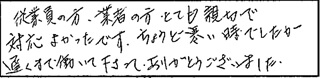 従業員の方、業者の方、とても親切で
対応よかったです。ちょうど寒い時でしたが
遅くまで働いて下さって、ありがとうございました。